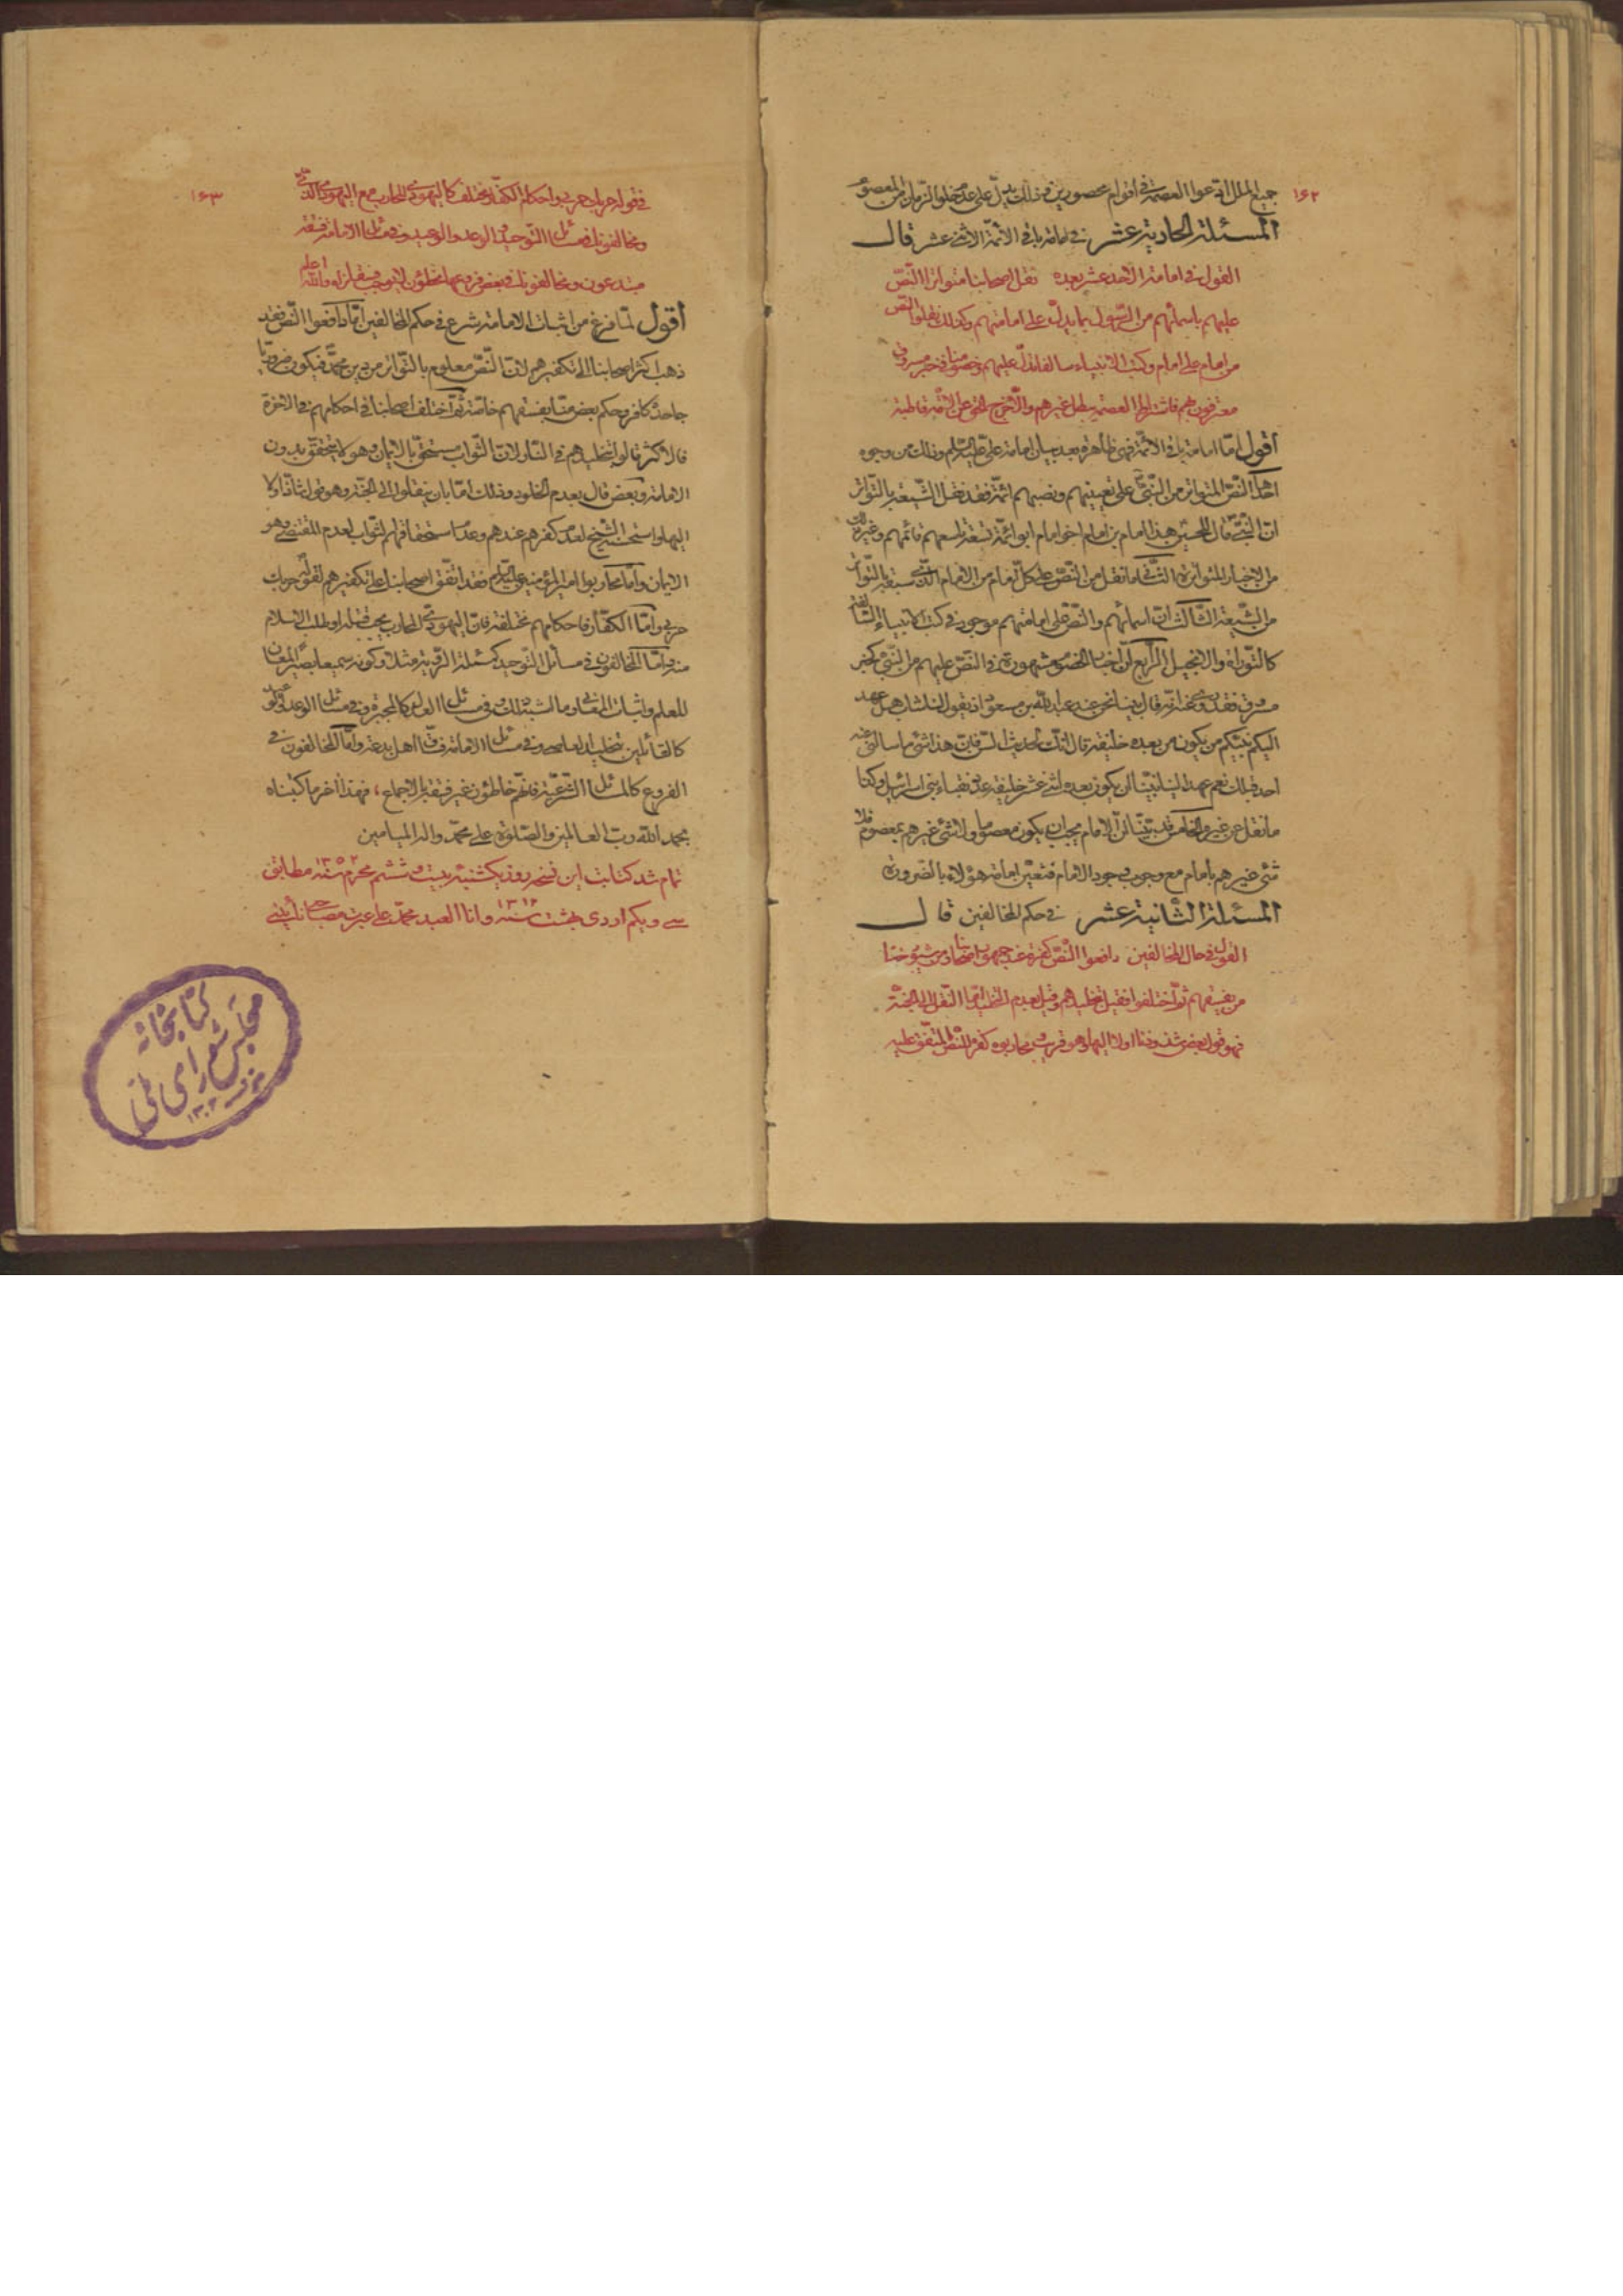 ١۶٢
جميع الملل ادّعوا العصمة فى اقوام محصورين فذلك يدلّ على عدم خلوا الزمان من المعصوم
المسئلة الحادية عشر فى امامة باقى الائمّة الاثنى عشر قال
القول فى امامة الاحد عشر بعده نقل اصحابنا متواترا النّصّ
عليهم باسمائهم من الرّسول بما يدلّ على امامتهم وكذلك نقلوا النّص
من امام على امام وكتب الانبياء سالفا تدلّ عليهم وخصوصا خبر مسروق
معترفون بهم فاشتراط العصمة يبطل غيرهم والّا خرج الحق عن الامّة قاطبة
اقول امّا امامة باقى الائمّة فهى ظاهرة بعد بيان امامة علىّ عليه السّلام وذلك من وجوه
احدها النّصّ المتواتر من النّبىّ على تعيينهم ونصبهم ائمّة فقد نقل الشّيعة بالتّواتر
انّ النّبىّ قال للحسين هذا امام بن امام اخو امام ابو ائمّة تسعة تاسعهم قائمهم وغير ذلك
من الاخبار المتواترة الثّانى ما نقل من النّصّ على كلّ امام من الامام الّذى سبقه بالتّواتر
من الشّيعة الثّالث انّ اسمائهم والنّصّ على امامتهم موجود فى كتب الانبياء السّالفة
كالتّوراة والانجيل الرّابع انّ اخبار الخصوم مشهورة فى النّصّ عليهم من النّبىّ كخبر
مسروق فقد روى عنه انّه قال بينا نحن عند عبد اللّه بن مسعود اذ يقول لنا شاب هل عهد
اليكم نبيّكم من يكون من بعده خليفة قال انّك لحديث السّن وانّ هذا شئ ما سالنى عنه
احد قبلك نعم عهد الينا نبيّنا ان يكون بعده اثنى عشر خليفة عدد نقباء بنى اسرائيل وكذا
ما نقل عن غيره الخامس قد بيّنّا انّ الامام يجب ان يكون معصوما ولا شئ غيرهم بمعصوم فلا
شئ غيرهم بامام مع وجوب وجود الامام فتعيّن امامة هؤلاء بالضّرورة
المسئلة الثّانية عشر فى حكم المخالفين قال
القول فى حال المخالفين دافعوا النّصّ كفرة عند جمهور اصحابنا ومن شيوخنا
من يفسقهم ثمّ اختلفوا فقيل بتخليدهم وقيل بعدم التخليد امّا النّقل الى الجنّة
فهو قول بعض شذوذنا او لا اليها وهو قريب ومحاربوه كفرة للنّصّ المتّفق عليه
١۶٣
فى قوله حربك حربى واحكام الكفّار تختلف كاليهودى المحارب مع اليهودى الذّمّى
ومخالفونا فى مسائل التّوحيد والوعد والوعيد وفى مسائل الامامة فسقة
مبتدعون ومخالفونا فى بعض فروعها مخطؤن لا يوجب فسقا لزلة واللّه اعلم
اقول لمّا فرغ من اثبات الامامة شرع فى حكم المخالفين امّا دافعوا النّصّ فقد
ذهب اكثر اصحابنا الى تكفيرهم لانّ النّصّ معلوم بالتّواتر من دين محمّد فيكون ضروريّا
جاحده كافر وحكم بعض منّا بفسقهم خاصّة ثمّ اختلف اصحابنا فى احكامهم فى الاخرة
فالاكثر قالوا بتخليدهم فى النّار لانّ الثّواب مستحق بالايمان وهو لا يتحقّق بدون
الامامة وبعض قال بعدم الخلود وذلك امّا بان ينقلوا الى الجنّة وهو قول شاذّ او لا
اليها واستحسنه الشّيخ لعدم كفرهم عندهم وعدم استحقاقهم الثّواب لعدم المقتضى وهو
الايمان وامّا محاربوا امير المؤمنين عليه السّلام فقد اتّفق اصحابنا على تكفيرهم لقوله حربك
حربى وامّا الكفّار فاحكامهم مختلفة فانّ اليهودى المحارب يجب قتله او طلب الاسلام
منه وامّا المخالفون فى مسائل التّوحيد كمسئلة الرّؤية مثلا وكونه سميعا بصيرا لمعان
للمعلم واثبات المعانى وما اشبه ذلك وفى مسائل العدل كالمجبرة وفى مسائل الوعد والوعيد
كالقائلين بتخليد اهل وفى مسائل الامامة فسّاق اهل بدعة وامّا المخالفون فى
الفروع كالمسائل الشّرعيّة فانّهم خاطؤن غير فسقة بالاجماع ، فهذا اخر ما كتبناه
بحمد اللّه ربّ العالمين والصّلوة على محمّد واله الميامين
تمام شد كتابت اين نسخه روز يكشنبه بيست و ششم محرم سنه ١٣٥٢ مطابق
سى و يكم اردى بهشت سنه ١٣١٢ وانا العبد محمّد على عبرت مصاحبى نائينى
كتابخانه
مجلس شوراى ملى
١٣٠٢